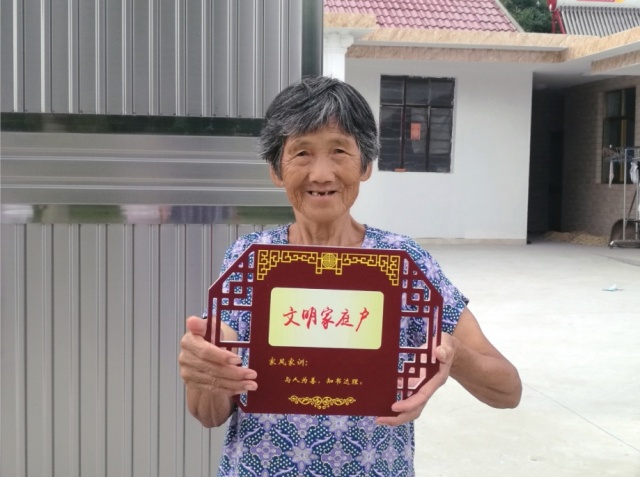 文明家庭户
家风家训:
与人为善，知书达理。